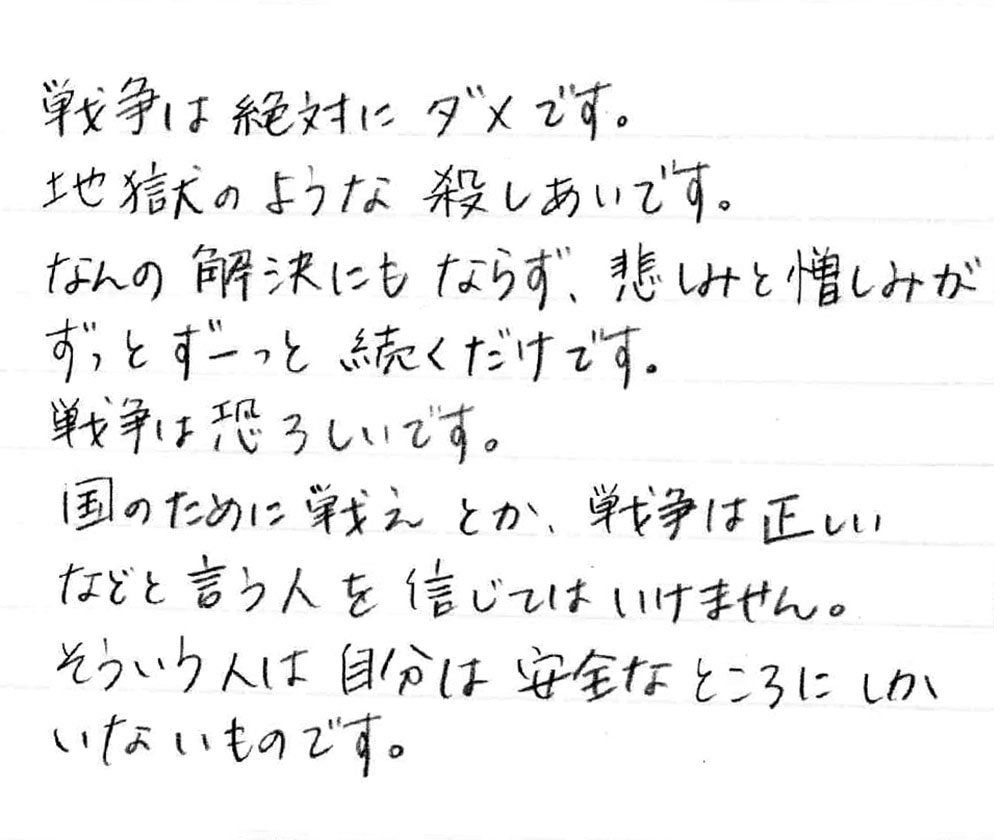 戦争は絶対にダメです。
地獄のような殺しあいです。
なんの解決にもならず、悲しみと憎しみが
ずっとずーっと続くだけです。
戦争は恐ろしいです。
国のために戦えとか、戦争は正しい
などと言う人を信じてはいけません。
そういう人は自分は安全なところにしか
いないものです。